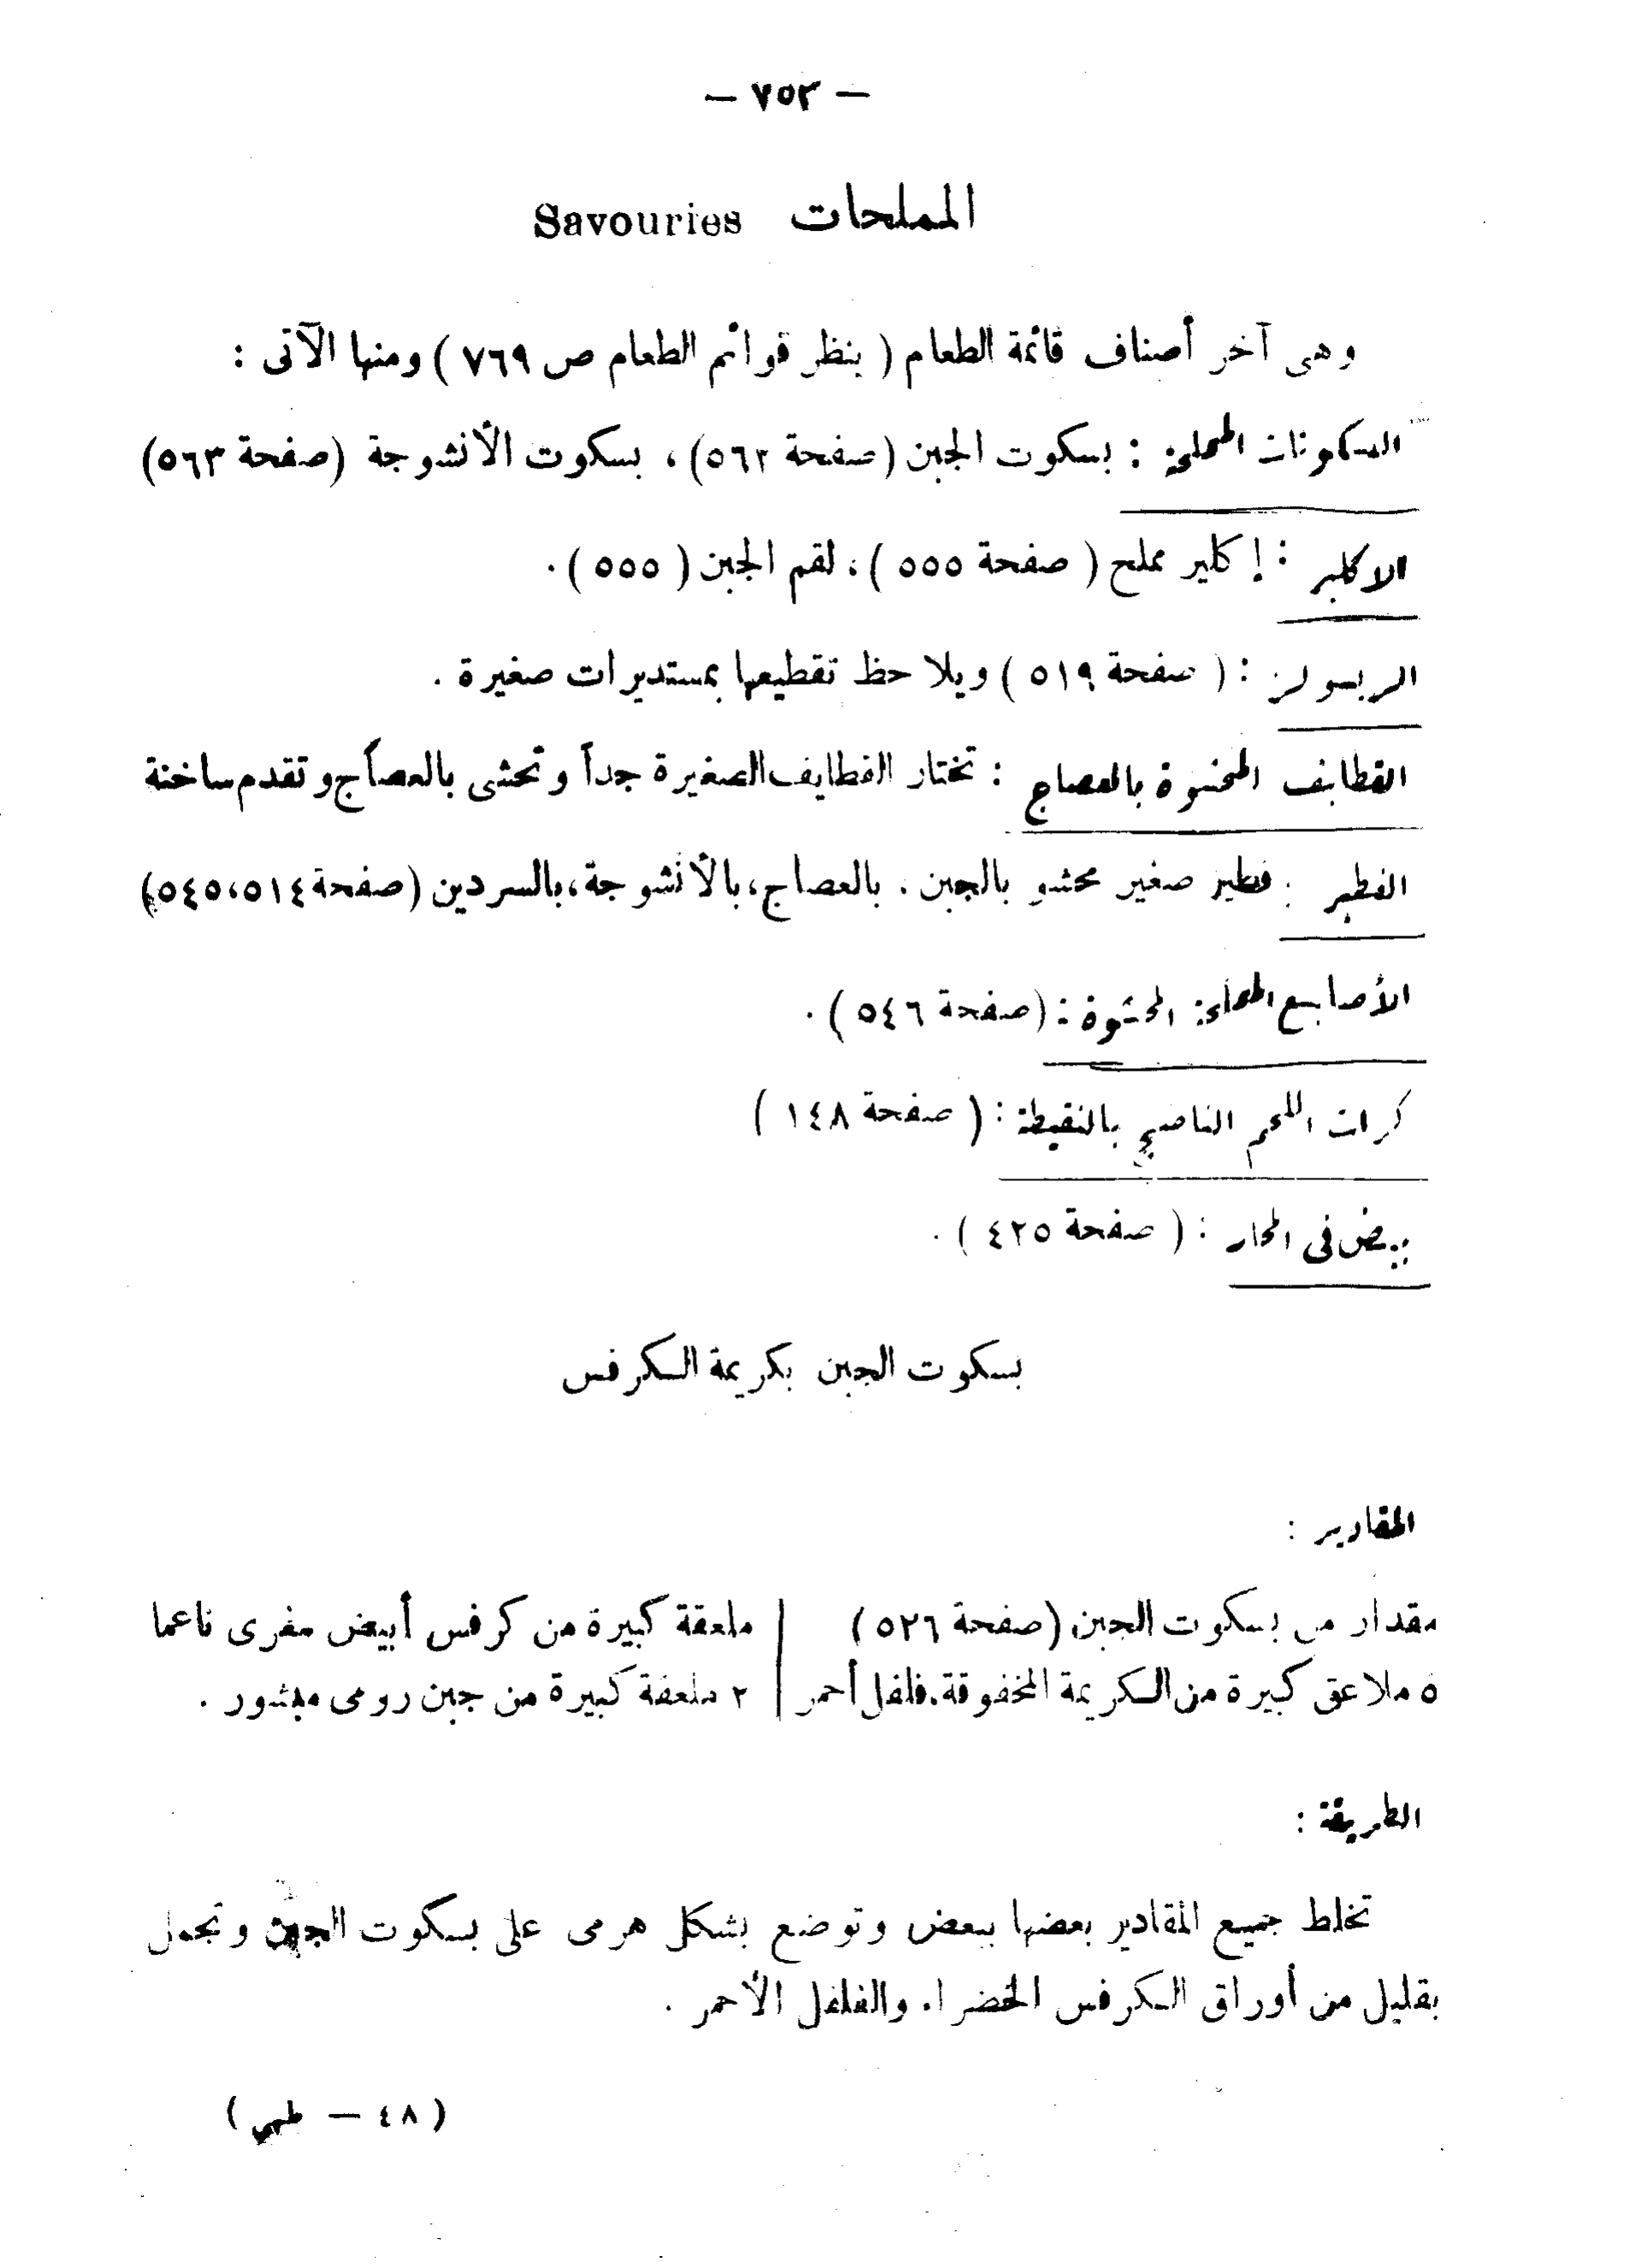 — ٧٥٣ —
المملحات Savouries
وهى آخر أصناف قائمة الطعام ( ينظر قوائم الطعام ص ٧٦٩ ) ومنها الآتى :
البسكوتات المملحة : بسكوت الجبن (صفحة ٥٦٢) ، بسكوت الأنشوجة (صفحة ٥٦٣)
الاكلير : إكلير مملح ( صفحة ٥٥٥ ) ، لقم الجبن ( ٥٥٥ ) .
الريسولز : ( صفحة ٥١٩ ) ويلاحظ تقطيعها بمستديرات صغيرة .
القطايف المحشوة بالعصاج : تختار القطايف الصغيرة جداً وتحشى بالعصاج وتقدم ساخنة
الفطير : فطير صغير محشو بالجبن . بالعصاج ، بالأنشوجة ، بالسردين (صفحة ٥١٤ ، ٥٤٥)
الأصابع المملحة المحشوة : (صفحة ٥٤٦ ) .
كرات اللحم الناضج بالنقيطة : ( صفحة ١٤٨ )
بيض فى المحار : ( صفحة ٤٢٥ ) .
بسكوت الجبن بكريمة الكرفس
المقادير :
مقدار من بسكوت الجبن (صفحة ٥٢٦ )
٥ ملاعق كبيرة من الكريمة المخفوقة . فلفل أحمر
ملعقة كبيرة من كرفس أبيض مفرى ناعما
٢ ملعقة كبيرة من جبن رومى مبشور .
الطريقة :
تخلط جميع المقادير بعضها ببعض وتوضع بشكل هرمى على بسكوت الجبن وتجمل
بقليل من أوراق الكرفس الخضراء والفلفل الأحمر .
( ٤٨ — طهى )